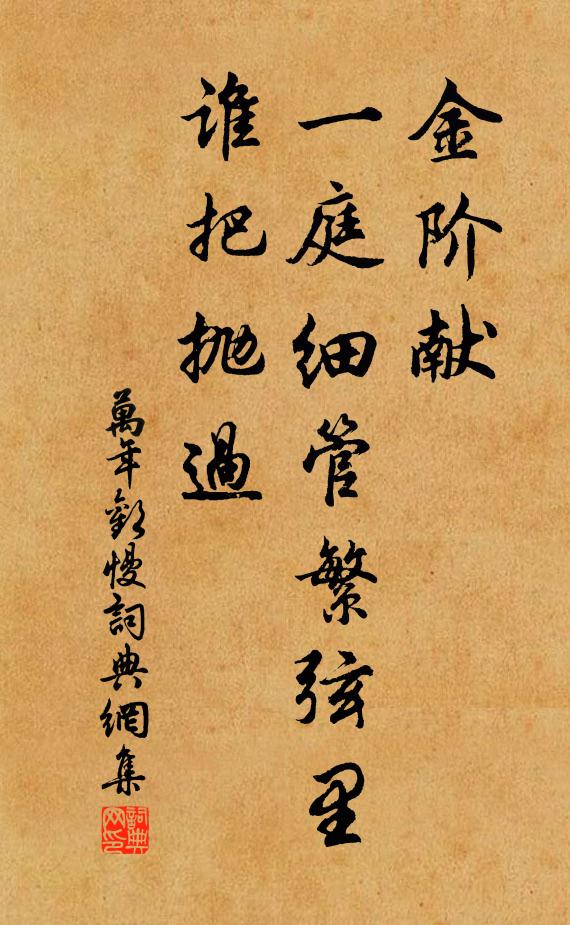 金阶献
一庭细管繁弦里
谁把抛過
萬年歡慢詞典網集
詞典网印